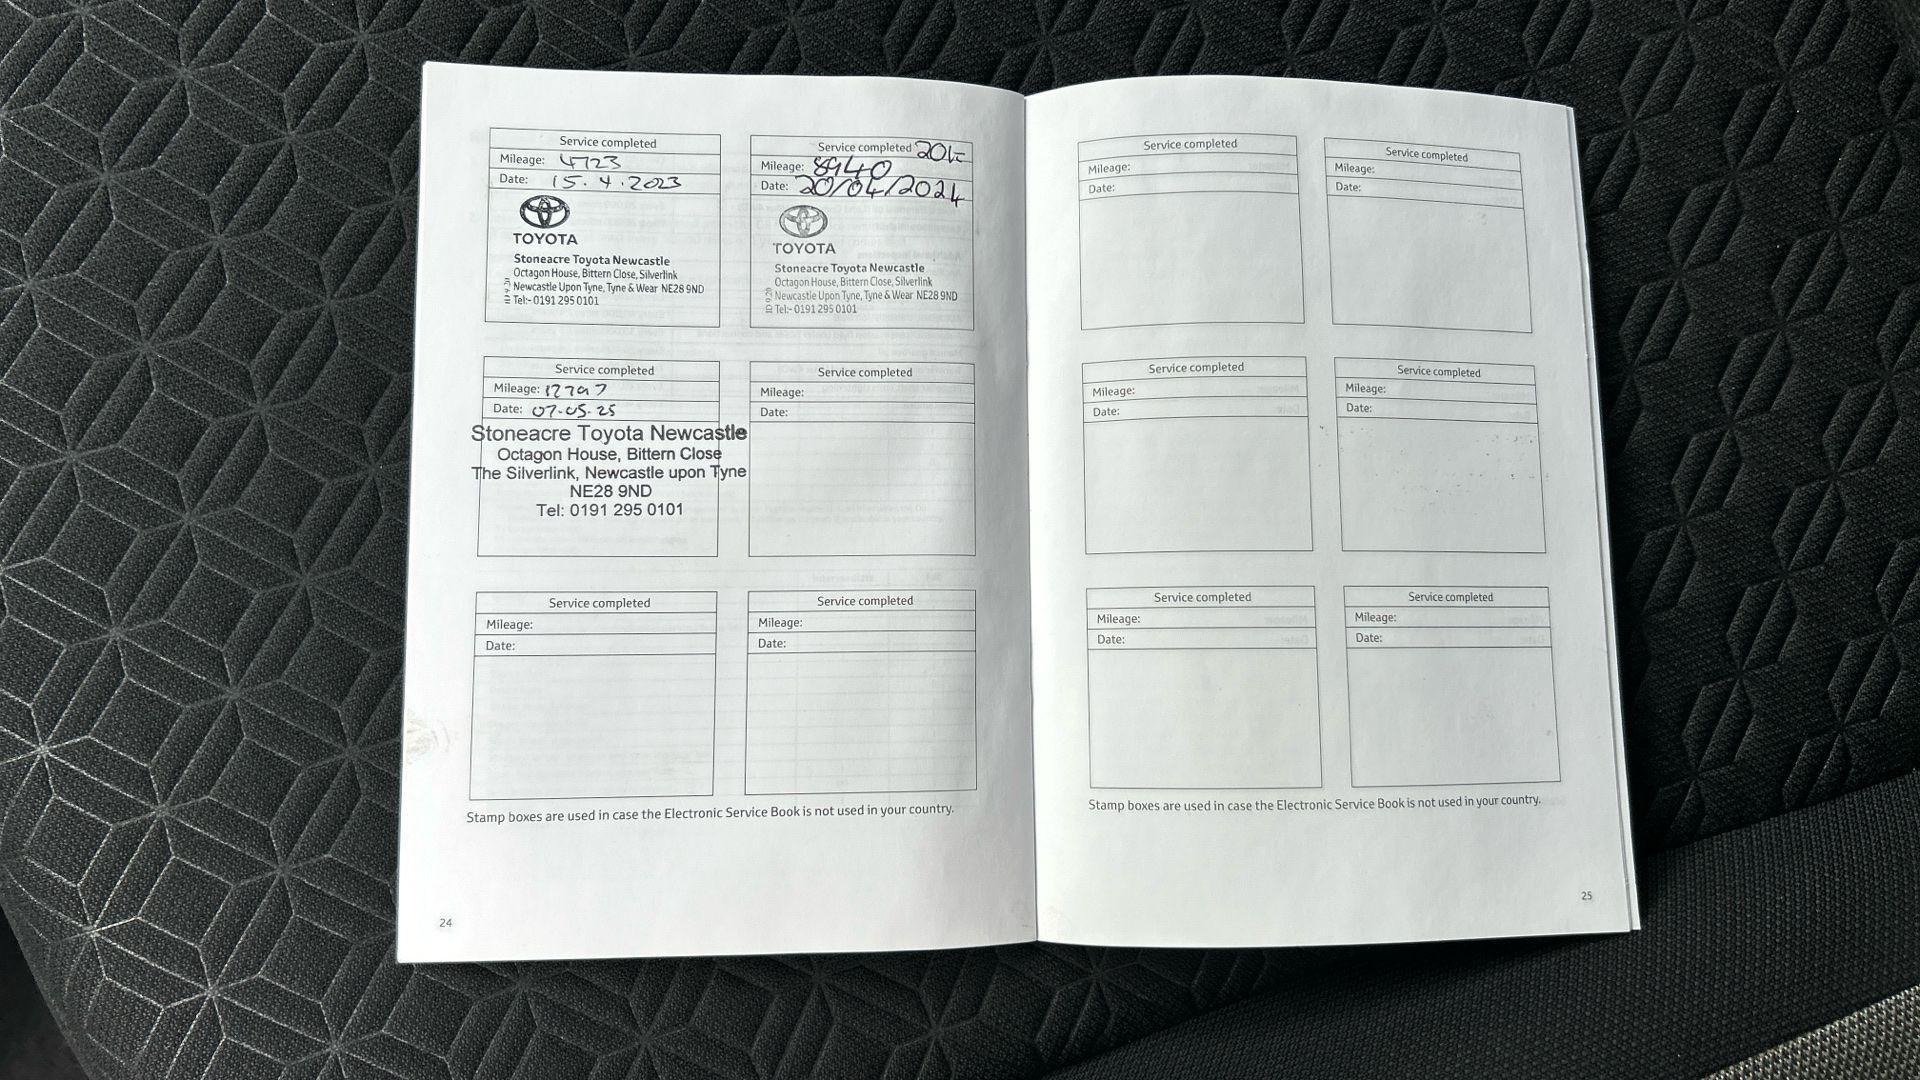 Service completed
Mileage: 4723
Date: 15.4.2023
TOYOTA
Stoneacre Toyota Newcastle
Octagon House, Bittern Close, Silverlink
Newcastle Upon Tyne, Tyne & Wear NE28 9ND
Tel:- 0191 295 0101
Service completed
Mileage: 8940
Date: 20/04/2024
TOYOTA
Stoneacre Toyota Newcastle
Octagon House, Bittern Close, Silverlink
Newcastle Upon Tyne, Tyne & Wear NE28 9ND
ID 9.20
Tel:- 0191 295 0101
Service completed
Mileage: 12797
Date: 07-05-25
Stoneacre Toyota Newcastle
Octagon House, Bittern Close
The Silverlink, Newcastle upon Tyne
NE28 9ND
Tel: 0191 295 0101
Service completed
Mileage:
Date:
Service completed
Mileage:
Date:
Service completed
Mileage:
Date:
Stamp boxes are used in case the Electronic Service Book is not used in your country.
24
Service completed
Mileage:
Date:
Service completed
Mileage:
Date:
Service completed
Mileage:
Date:
Service completed
Mileage:
Date:
Service completed
Mileage:
Date:
Service completed
Mileage:
Date:
Stamp boxes are used in case the Electronic Service Book is not used in your country.
25